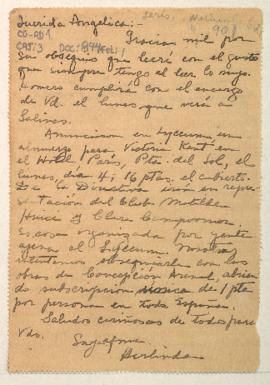 Querida Angélica:-
CO-AD1
CAJ:3 DOC: 944
Gracias mil por
su obsequio que leeré con el gusto
que siempre tengo al leer lo suyo.
Homero cumplirá con el encargo
de Vd. el lunes que verá a
Salinas.
Anuncian en Lyceum un
almuerzo para Victoria Kent en
el Hotel París, Pta del Sol, el
lunes, día 4; 16 ptas. el cubierto.
De la Directiva irán en repre-
sentación del Club Matilde
Huici y Clara Campoamor.
Es cosa organizada por gente
agena al Lyceum. Nosotras
intentamos obsequiarla con las
obras de Concepción Arenal, abrien-
do subscripción de 1 pta
por persona en toda España.
Saludos cariñosos de todos para
Vds.
Su
Herlinda